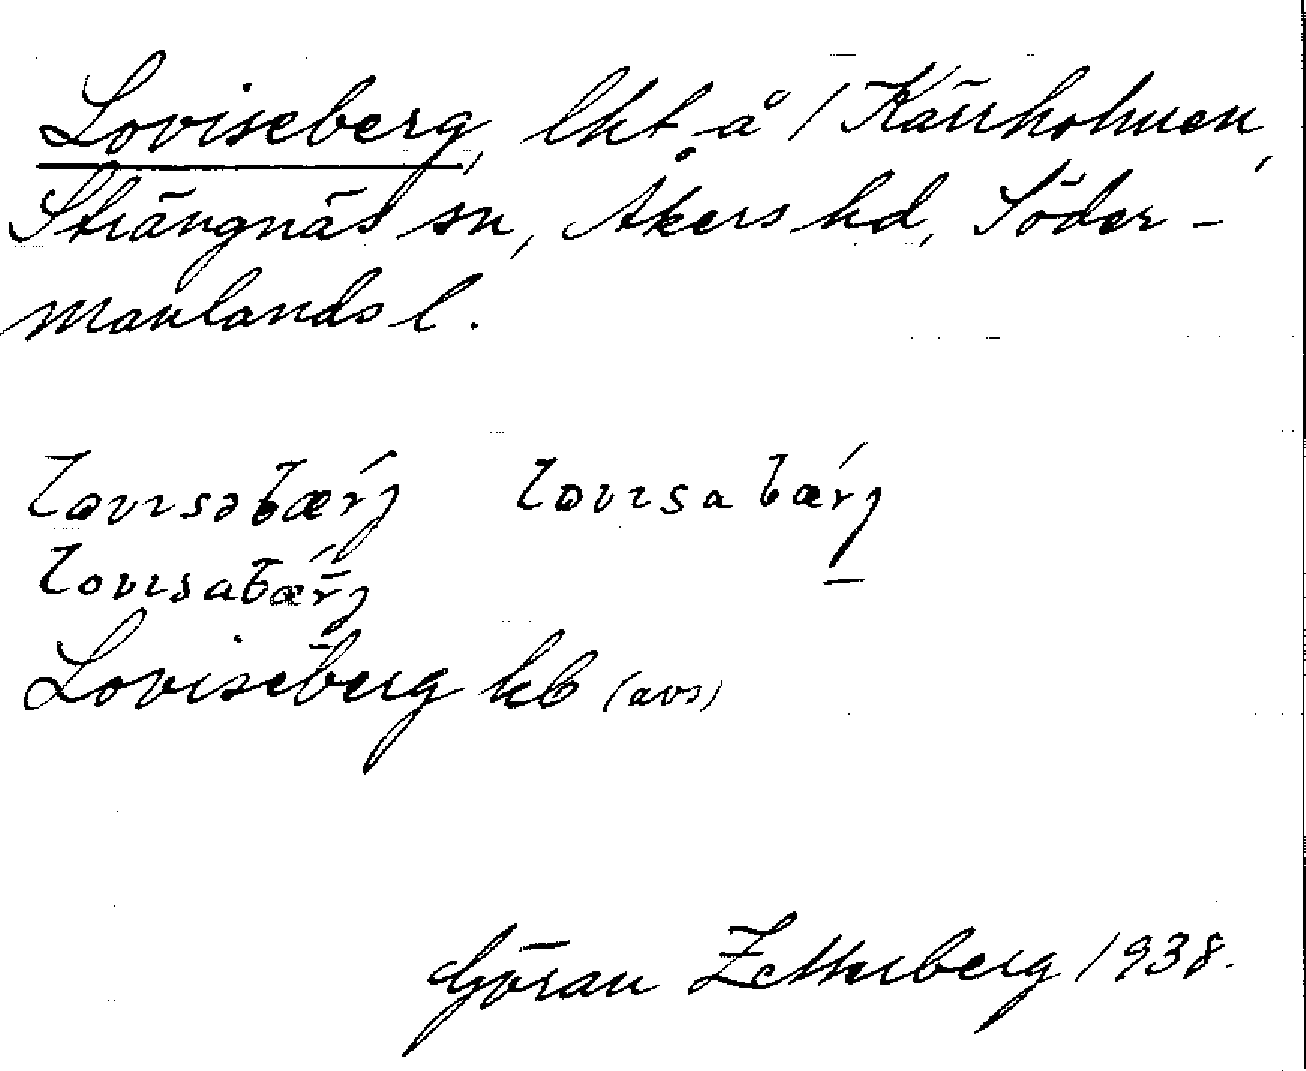 Loviseberg, lht å 1 Kärrholmen,
Strängnäs sn, Åkers hd, Söder-
manlands l.
lovisəbærj lovisabærj
lovisabærj
Loviseberg kb (avs)
Göran Zetterberg 1938.